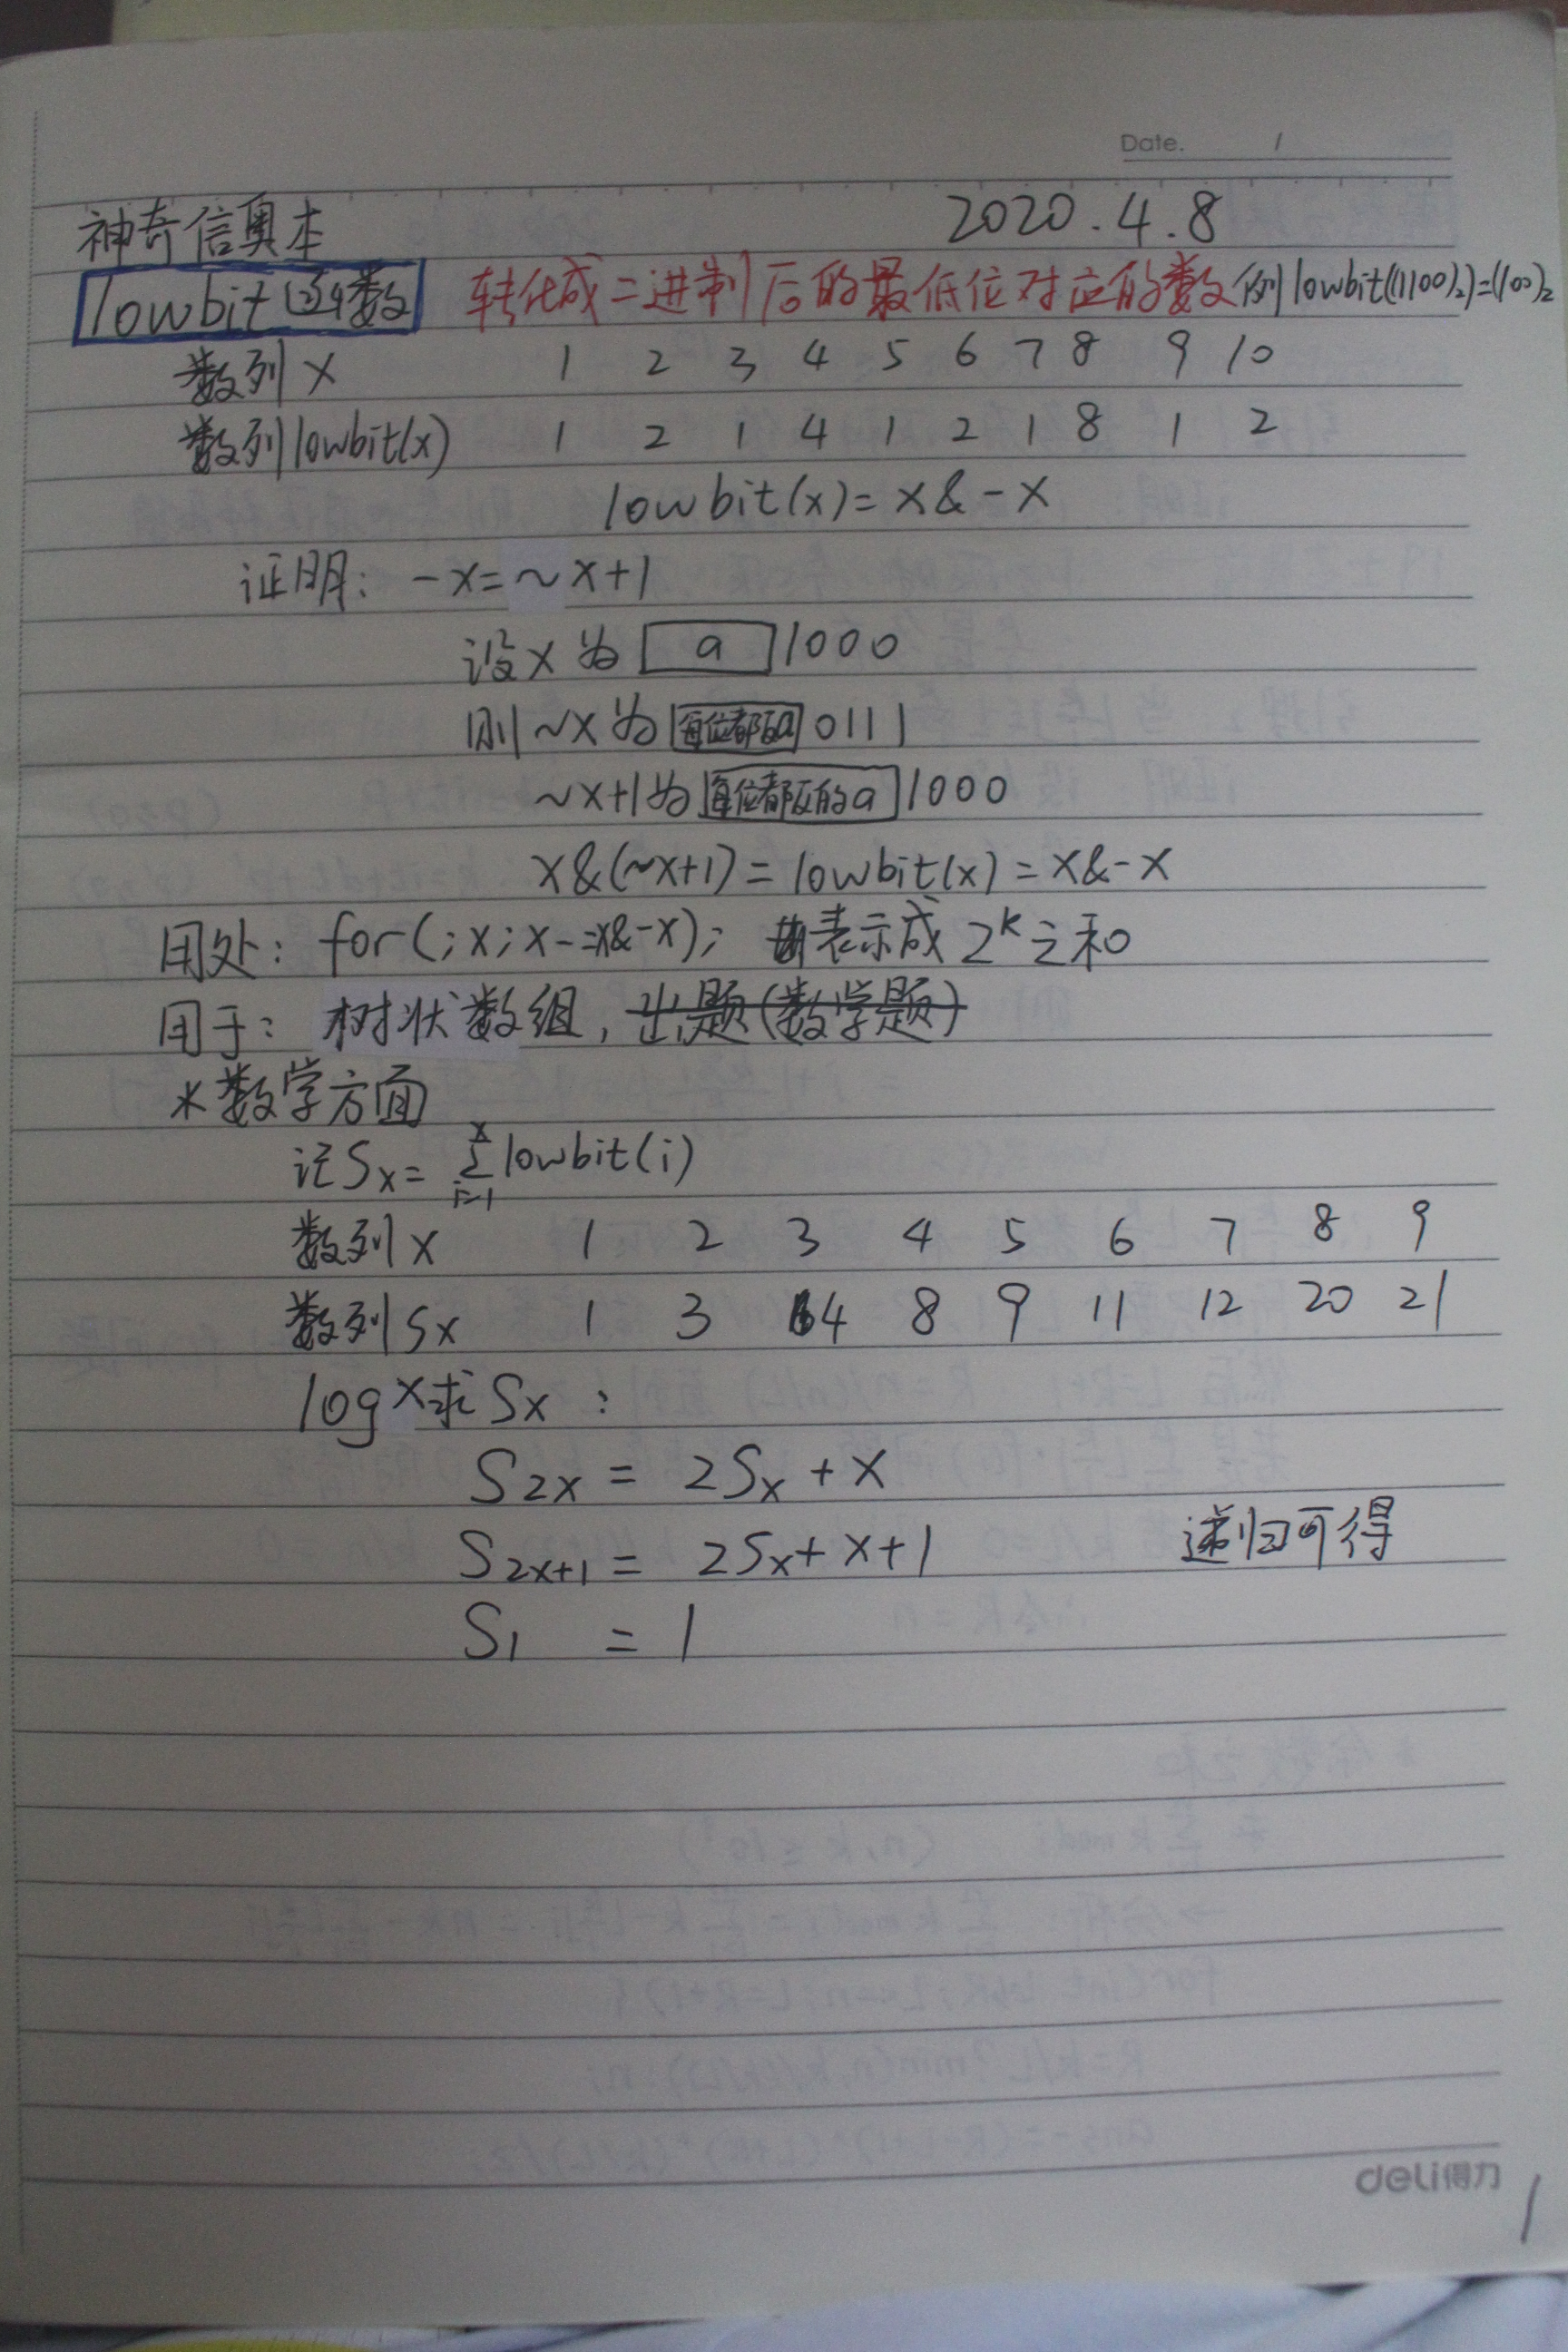 Date. /
神奇信奥本 2020.4.8
lowbit函数 转化成二进制后的最低位对应的数 例lowbit((1100)₂)=(100)₂
数列x 1 2 3 4 5 6 7 8 9 10
数列lowbit(x) 1 2 1 4 1 2 1 8 1 2
lowbit(x)=x&-x
证明: -x=~x+1
设x为 a 1000
则~x为 每位都反a 0111
~x+1为 每位都反的a 1000
x&(~x+1)=lowbit(x)=x&-x
用处: for(;x;x-=x&-x); 表示成2ᵏ之和
用于: 树状数组, 出题(数学题)
*数学方面
记Sx= Σ_{i=1}^{x} lowbit(i)
数列x 1 2 3 4 5 6 7 8 9
数列Sx 1 3 4 8 9 11 12 20 21
logx求Sx:
S2x = 2Sx+x
S2x+1 = 2Sx+x+1 递归可得
S1 = 1
deli得力
1